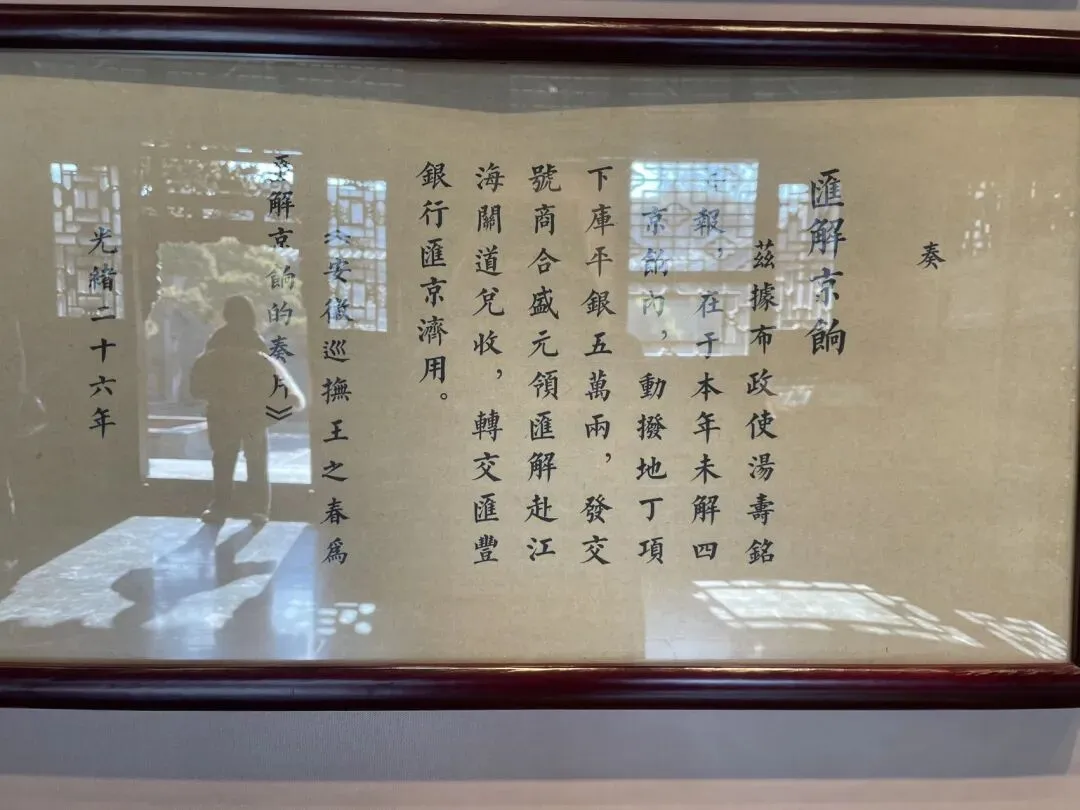 奏
匯解京餉
茲據布政使湯壽銘
報，在于本年未解四
京餉內，動撥地丁項
下庫平銀五萬兩，發交
號商合盛元領匯解赴江
海關道兌收，轉交匯豐
銀行匯京濟用。
《安徽巡撫王之春為
解京餉的奏片》
光緒二十六年